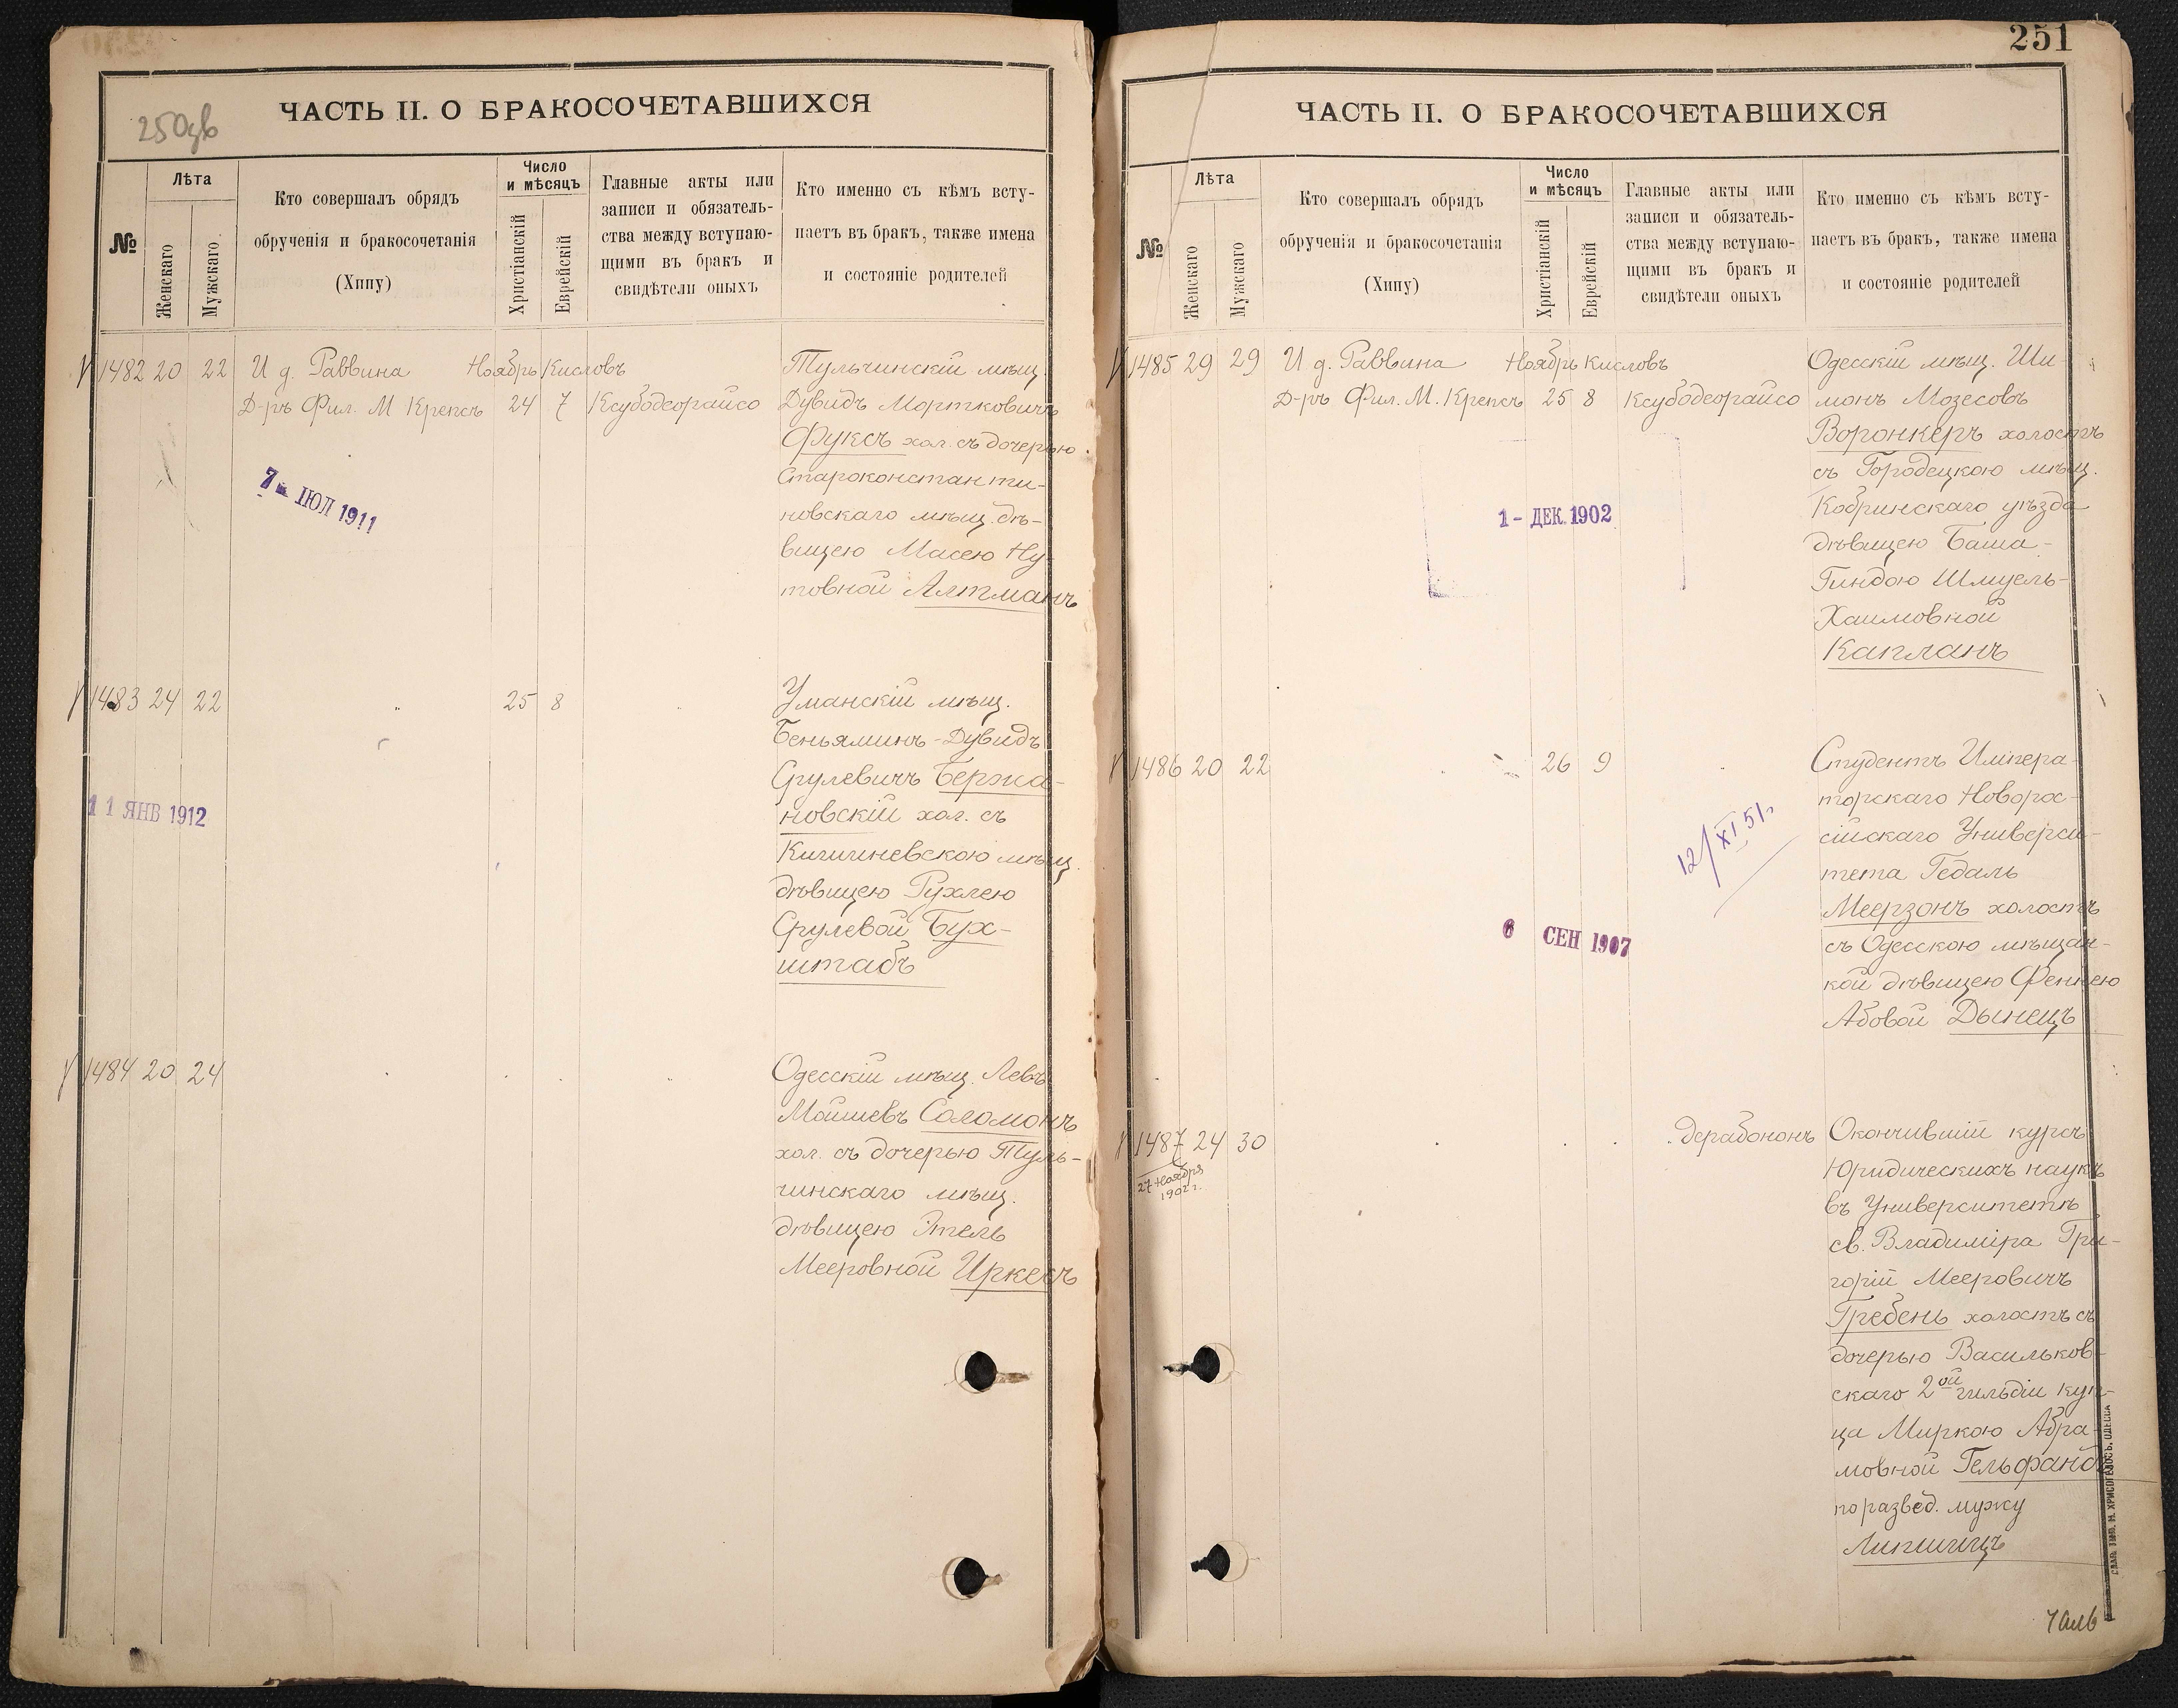 250зв
ЧАСТЬ II. О БРАКОСОЧЕТАВШИХСЯ
№
Лѣта
Женскаго
Мужскаго
Кто совершалъ обрядъ
обрученія и бракосочетанія
(Хипу)
Число
и мѣсяцъ
Христіанскій
Еврейскій
Главные акты или
записи и обязатель-
ства между вступаю-
щими въ бракъ и
свидѣтели оныхъ
Кто именно съ кѣмъ всту-
паетъ въ бракъ, также имена
и состояніе родителей
1482 20 22 И д. Раввина Ноябрь Кисловъ Тульчинскій мѣщ.
Д-ръ Фил. М Крепсъ 24 7 Ксубодеорайсо Дувидъ Мортковичъ
Фуксъ хол. съ дочерью
Староконстанти-
новскаго мѣщ. дѣ-
вицею Масею Ну-
товной Алтманъ
7 - ІЮЛ 1911
1483 24 22 " 25 8 " Уманскій мѣщ.
Беньяминъ-Дувидъ
Срулевичъ Бержа-
новскій хол. съ
Кишиневскою мѣщ.
дѣвицею Рухлею
Срулевой Бух-
штабъ
11 ЯНВ 1912
1484 20 24 Одесскій мѣщ. Левъ
Мошиевъ Соломонъ
хол. съ дочерью Туль-
чинскаго мѣщ.
дѣвицею Этель
Мееровной Иркесъ
251
ЧАСТЬ II. О БРАКОСОЧЕТАВШИХСЯ
№
Лѣта
Женскаго
Мужскаго
Кто совершалъ обрядъ
обрученія и бракосочетанія
(Хипу)
Число
и мѣсяцъ
Христіанскій
Еврейскій
Главные акты или
записи и обязатель-
ства между вступаю-
щими въ бракъ и
свидѣтели оныхъ
Кто именно съ кѣмъ всту-
паетъ въ бракъ, также имена
и состояніе родителей
1485 29 29 И д. Раввина Ноябрь Кисловъ Одесскій мѣщ. Ши-
Д-ръ Фил. М. Крепсъ 25 8 Ксубодеорайсо монъ Мозесовъ
Воронкеръ холостъ
съ Городецкою мѣщ.
Кобринскаго уѣзда
дѣвицею Баша-
Гиндою Шмуель-
Хаимовной
Капланъ
1 - ДЕК. 1902
1486 20 22 26 9 Студентъ Импера-
торскаго Новорос-
сійскаго Универси-
тета Гедаль
Меерзонъ холостъ
съ Одесскою мѣщан-
кой дѣвицею Фейгею
Абовой Дынецъ
12/XI 51г.
6 СЕН 1907
1487 24 30 дерабононъ Окончившій курсъ
27 Ноября
1902 г.
Юридическихъ наукъ
въ Университетѣ
св. Владиміра Гри-
горій Мееровичъ
Гребень холостъ съ
дочерью Васильков-
скаго 2ой гильдіи куп-
ца Миркою Абра-
мовной Гельфандъ
по развед. мужу
Липшицъ
СЛАВ. ТИП. Н. ХРИСОГЕЛОСЪ. ОДЕССА